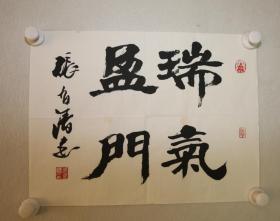 瑞氣
盈門
張有清書